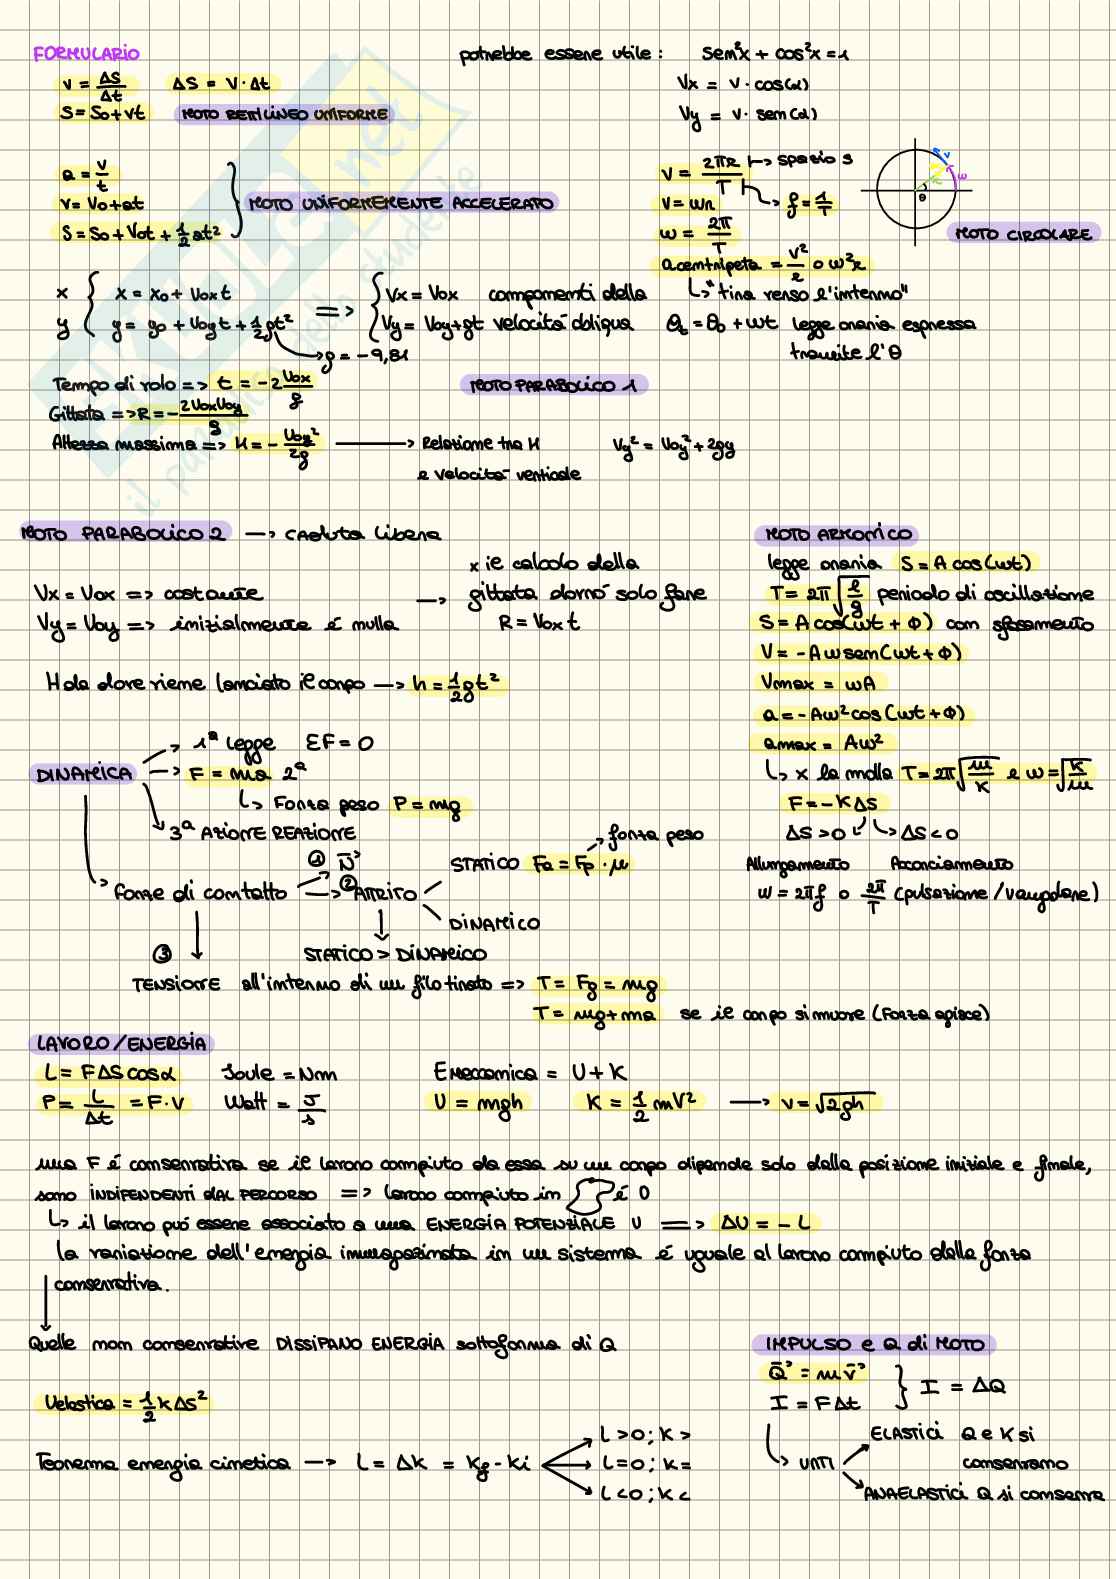 FORMULARIO
potrebbe essere utile : sen²x + cos²x = 1
v = ΔS/Δt ΔS = V · Δt
Vx = v · cos(α)
S = S₀ + vt MOTO RETTILINEO UNIFORME
Vy = v · sen(α)
a = v/t
v = V₀ + at
S = S₀ + V₀t + 1/2 at²
MOTO UNIFORMEMENTE ACCELERATO
V = 2πR/T → spazio s
→ f = 1/T
V = ωr
ω = 2π/T
a centripeta = v²/r o ω²r
↳ "tira verso l'interno"
θ
v
ω
MOTO CIRCOLARE
θt = θ₀ + ωt legge oraria espressa
tramite l'θ
x { x = x₀ + V₀x t
y { y = y₀ + V₀y t + 1/2 gt²
→ g = -9,81
=> { Vx = V₀x componenti della
{ Vy = V₀y + gt velocità obliqua
Tempo di volo => t = -2 V₀x/g
MOTO PARABOLICO 1
Gittata => R = - 2V₀xV₀y/g
Altezza massima => H = - V₀y²/2g → Relazione tra H
e velocità verticale
Vy² = V₀y² + 2gy
MOTO PARABOLICO 2 → caduta libera
Vx = V₀x => costante
Vy = V₀y => inizialmente è nulla
→ x il calcolo della
gittata dovrò solo fare
R = V₀x t
H da dove viene lanciato il corpo → h = 1/2 gt²
MOTO ARMONICO
legge oraria S = A cos(ωt)
T = 2π √(l/g) periodo di oscillazione
S = A cos(ωt + Φ) con sfasamento
V = -Aω sen(ωt + Φ)
Vmax = ωA
a = -Aω² cos(ωt + Φ)
amax = Aω²
↳ x la molla T = 2π √(m/K) e ω = √(K/m)
F = -K ΔS
ΔS > 0 ΔS < 0
Allungamento Accorciamento
ω = 2πf o 2π/T (pulsazione /
DINAMICA
→ 1ª legge ΣF = 0
→ F = ma 2ª
↳ Forza peso P = mg
3ª AZIONE REAZIONE
forze di contatto
① N
② ATTRITO
STATICO Fa = Fp · μ → forza peso
DINAMICO
STATICO > DINAMICO
③
TENSIONE all'interno di un filo tirato => T = Fg = mg
T = mg + ma se il corpo si muove (Forza agisce)
LAVORO / ENERGIA
L = F ΔS cos α Joule = Nm Emeccanica = U + K
P = L/Δt = F · V Watt = J/s U = mgh K = 1/2 mV² → v = √2gh
una F è conservativa se il lavoro compiuto da essa su un corpo dipende solo dalla posizione iniziale e finale,
sono INDIPENDENTI DAL PERCORSO => lavoro compiuto in è 0
↳ il lavoro può essere associato a una ENERGIA POTENZIALE U => ΔU = - L
la variazione dell'energia immagazzinata in un sistema è uguale al lavoro compiuto della forza
conservativa.
Quelle non conservative DISSIPANO ENERGIA sottoforma di Q
Uelastica = 1/2 k ΔS²
Teorema energia cinetica → L = ΔK = Kf - Ki
L > 0 ; K >
L = 0 ; K =
L < 0 ; K <
IMPULSO e Q di MOTO
Q = m v
I = F Δt
} I = ΔQ
↳ URTI
ELASTICI Q e K si
conservano
ANAELASTICI Q si conserva
SKUOLA.net
il paradiso dello studente